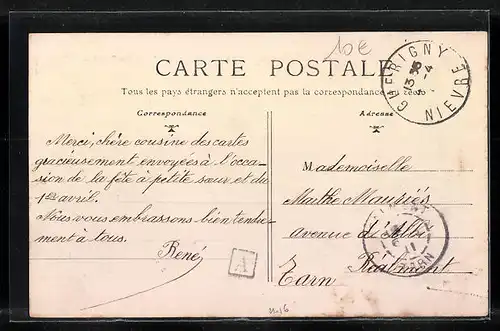 10€
CARTE POSTALE
Tous les pays étrangers n'acceptent pas la correspondance au recto
Correspondance
Merci, chère cousine des cartes
gracieusement envoyées à l'occa-
sion de la fête à petite sœur et du
1er avril.
Nous vous embrassons bien tendre-
ment à tous.
René
A
Adresse
Mademoiselle
Maithe Mauriès
avenue d'Albi
Réalmont
Tarn
GUERIGNY
NIEVRE
TARN